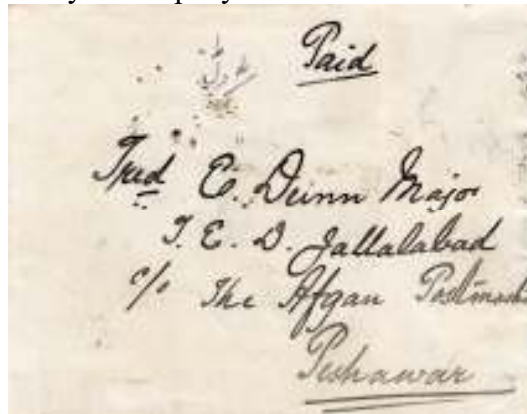 Paid
Fred E. Dunn Major
T. E. D. Jallalabad
c/o The Afgan Postmas
Peshawar